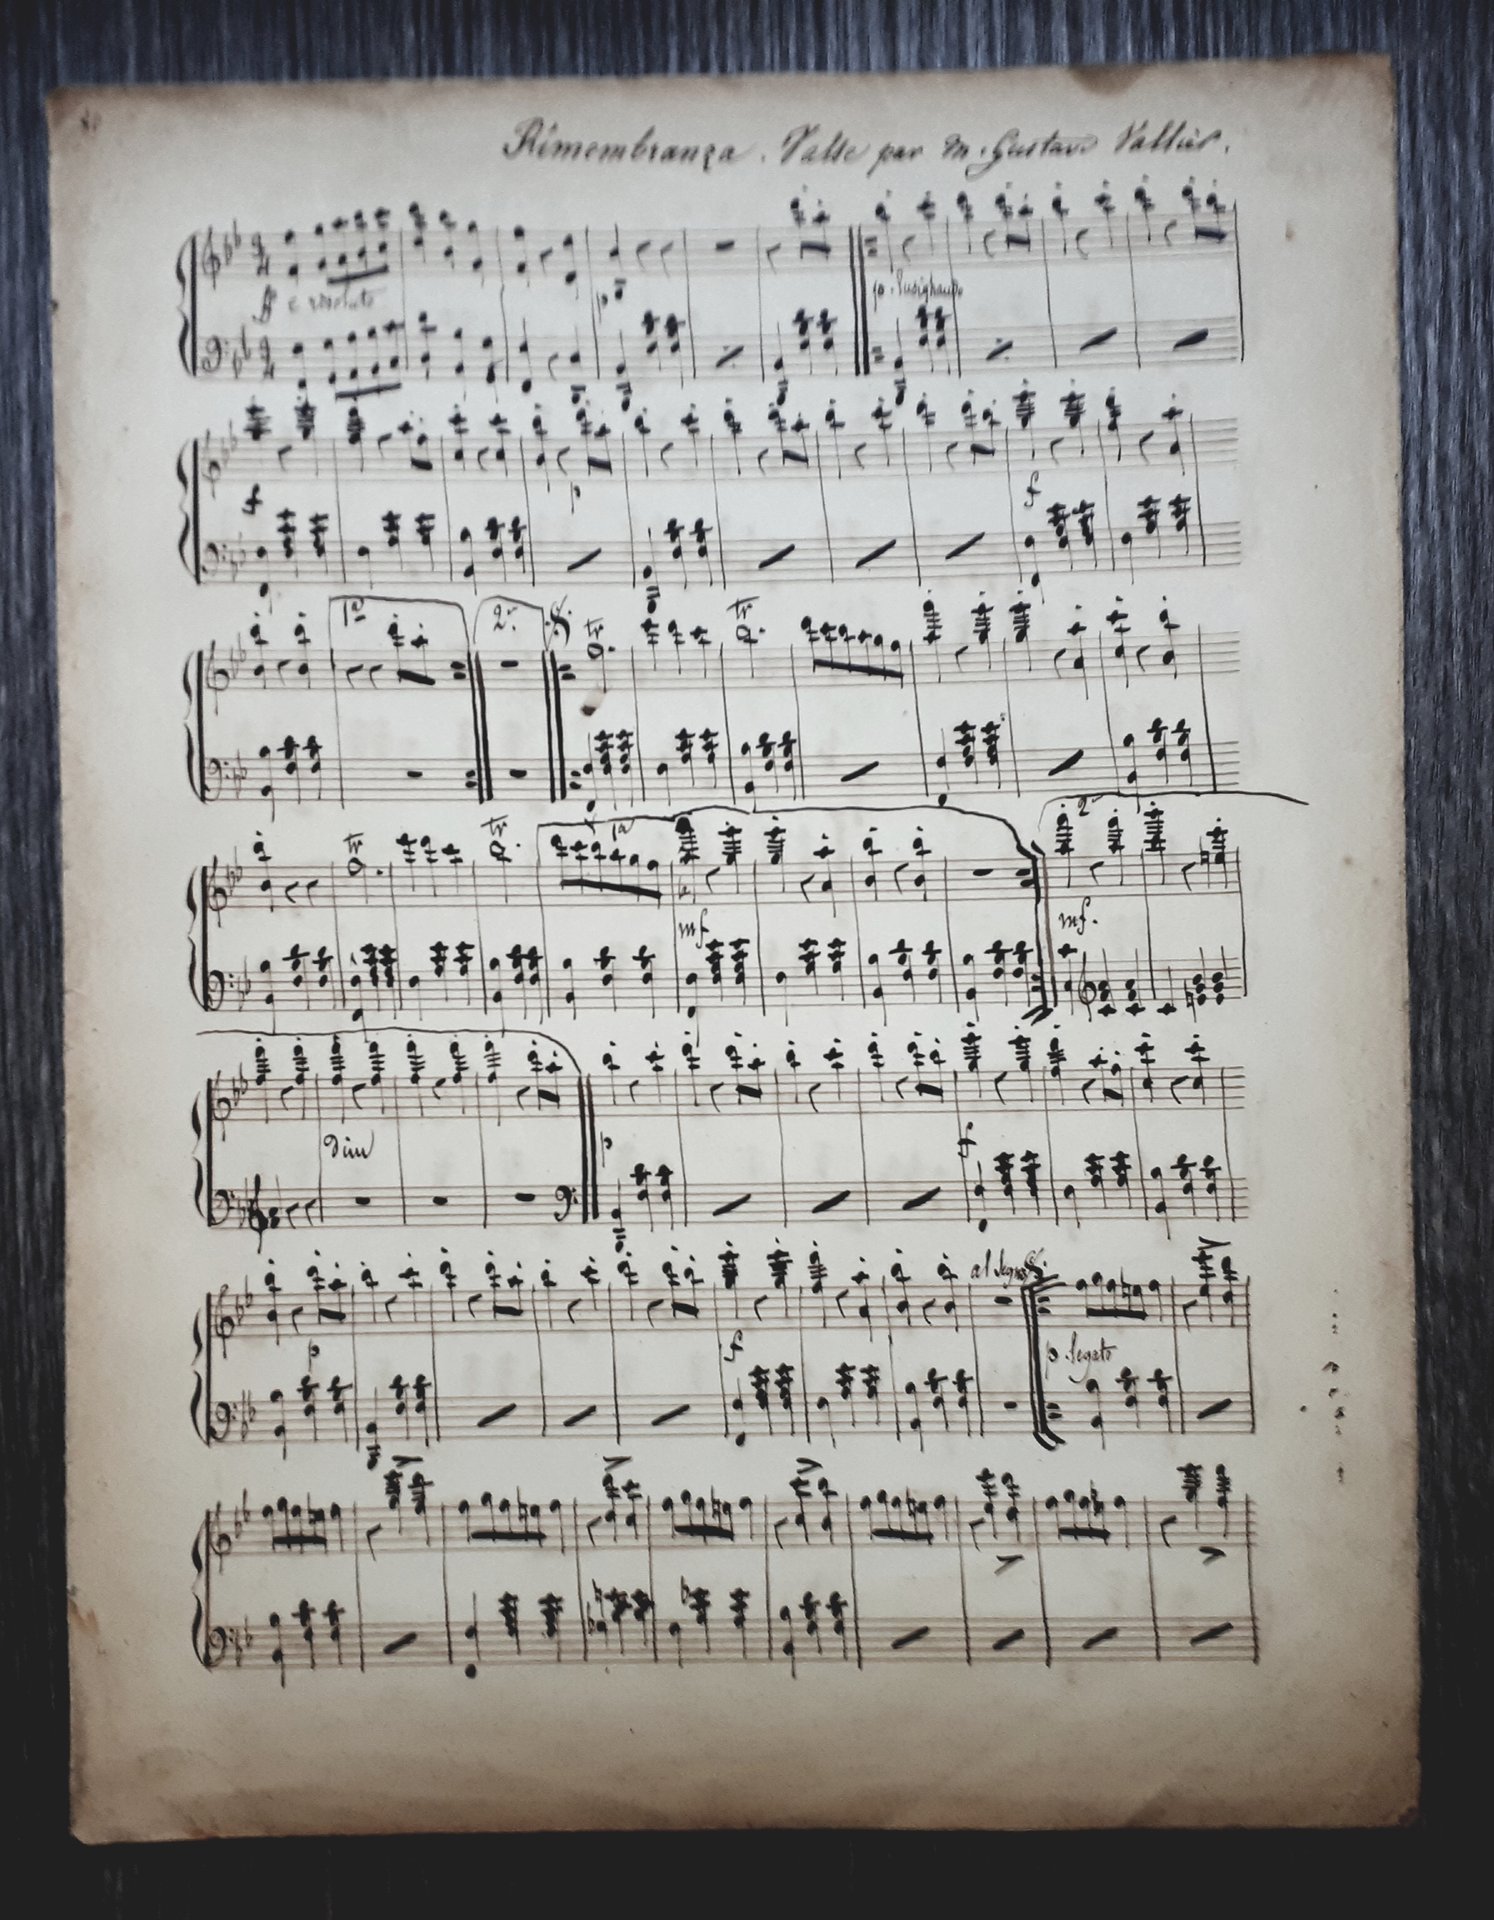 Rimembranza. Valse par M. Gustave
ff e risoluto
p
p
f
p
f
1a
2a
tr
tr
tr
tr
1a
2a
mf
mf.
dim
p
f
al Segno
p
f
p. legato